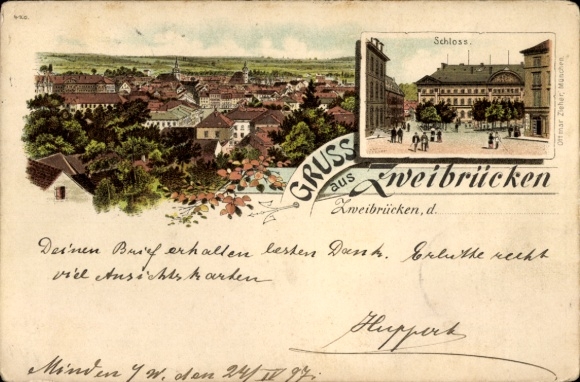 Schloss.
Ottmar Zieher, München.
GRUSS
aus Zweibrücken
Zweibrücken, d.
Deinen Brief erhalten besten Dank. recht
viel Ansichtskarten
Huppert
Minden i/W. den 24/IV 97.